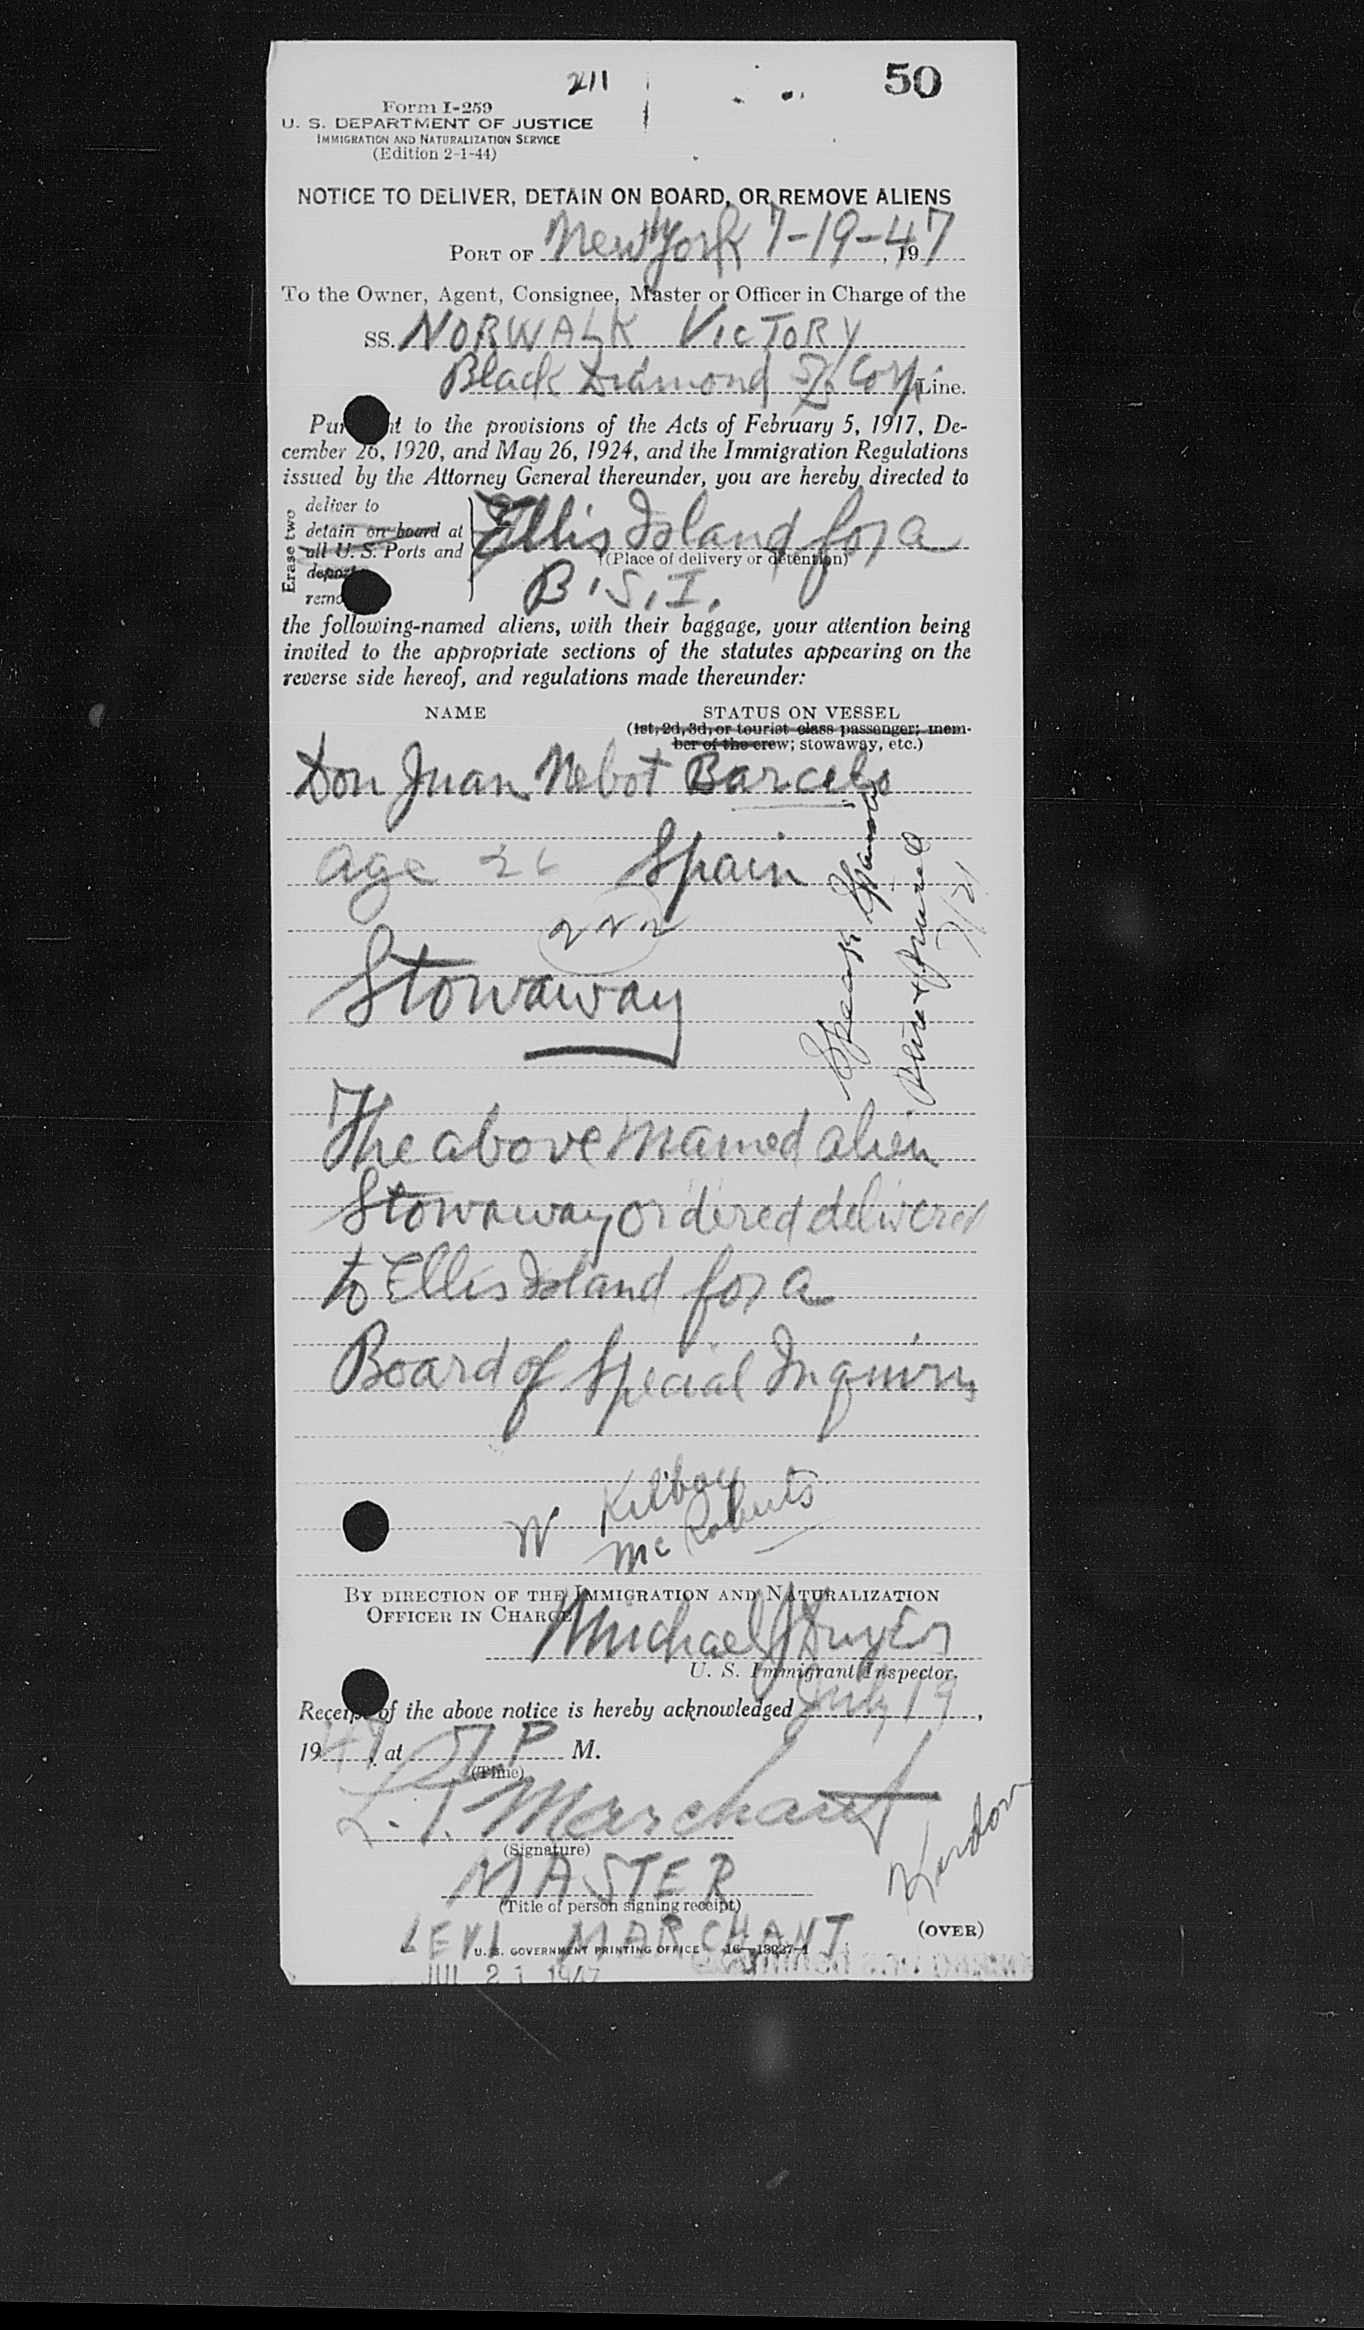 211
50
Form I-259
U. S. DEPARTMENT OF JUSTICE
IMMIGRATION AND NATURALIZATION SERVICE
(Edition 2-1-44)
NOTICE TO DELIVER, DETAIN ON BOARD, OR REMOVE ALIENS
PORT OF New York 7-19-47, 19
To the Owner, Agent, Consignee, Master or Officer in Charge of the
SS. NORWALK VICTORY
Black Diamond SS Corp. Line.
Pursuant to the provisions of the Acts of February 5, 1917, De-
cember 26, 1920, and May 26, 1924, and the Immigration Regulations
issued by the Attorney General thereunder, you are hereby directed to
Erase two
deliver to
detain on board at
all U. S. Ports and
deport
remo
Ellis Island for a
(Place of delivery or detention)
B.S.I.
the following-named aliens, with their baggage, your attention being
invited to the appropriate sections of the statutes appearing on the
reverse side hereof, and regulations made thereunder:
NAME STATUS ON VESSEL
(1st, 2d, 3d, or tourist class passenger; mem-
ber of the crew; stowaway, etc.)
Don Juan Nebot Barcelo
age 26 Spain
222
Stowaway
Speaks Spanish
7/21
The above named alien
Stowaway ordered delivered
to Ellis Island for a
Board of Special Inquiry
W Kilboy
McRoberts
BY DIRECTION OF THE IMMIGRATION AND NATURALIZATION
OFFICER IN CHARGE
Michael J Dwyer
U. S. Immigrant Inspector.
Receipt of the above notice is hereby acknowledged July 19,
1947, at 5 P M.
(Time)
L. T. Marchant
(Signature)
MASTER
(Title of person signing receipt)
LEVI MARCHANT
(OVER)
U. S. GOVERNMENT PRINTING OFFICE 16—13227-1
JUL 21 1947